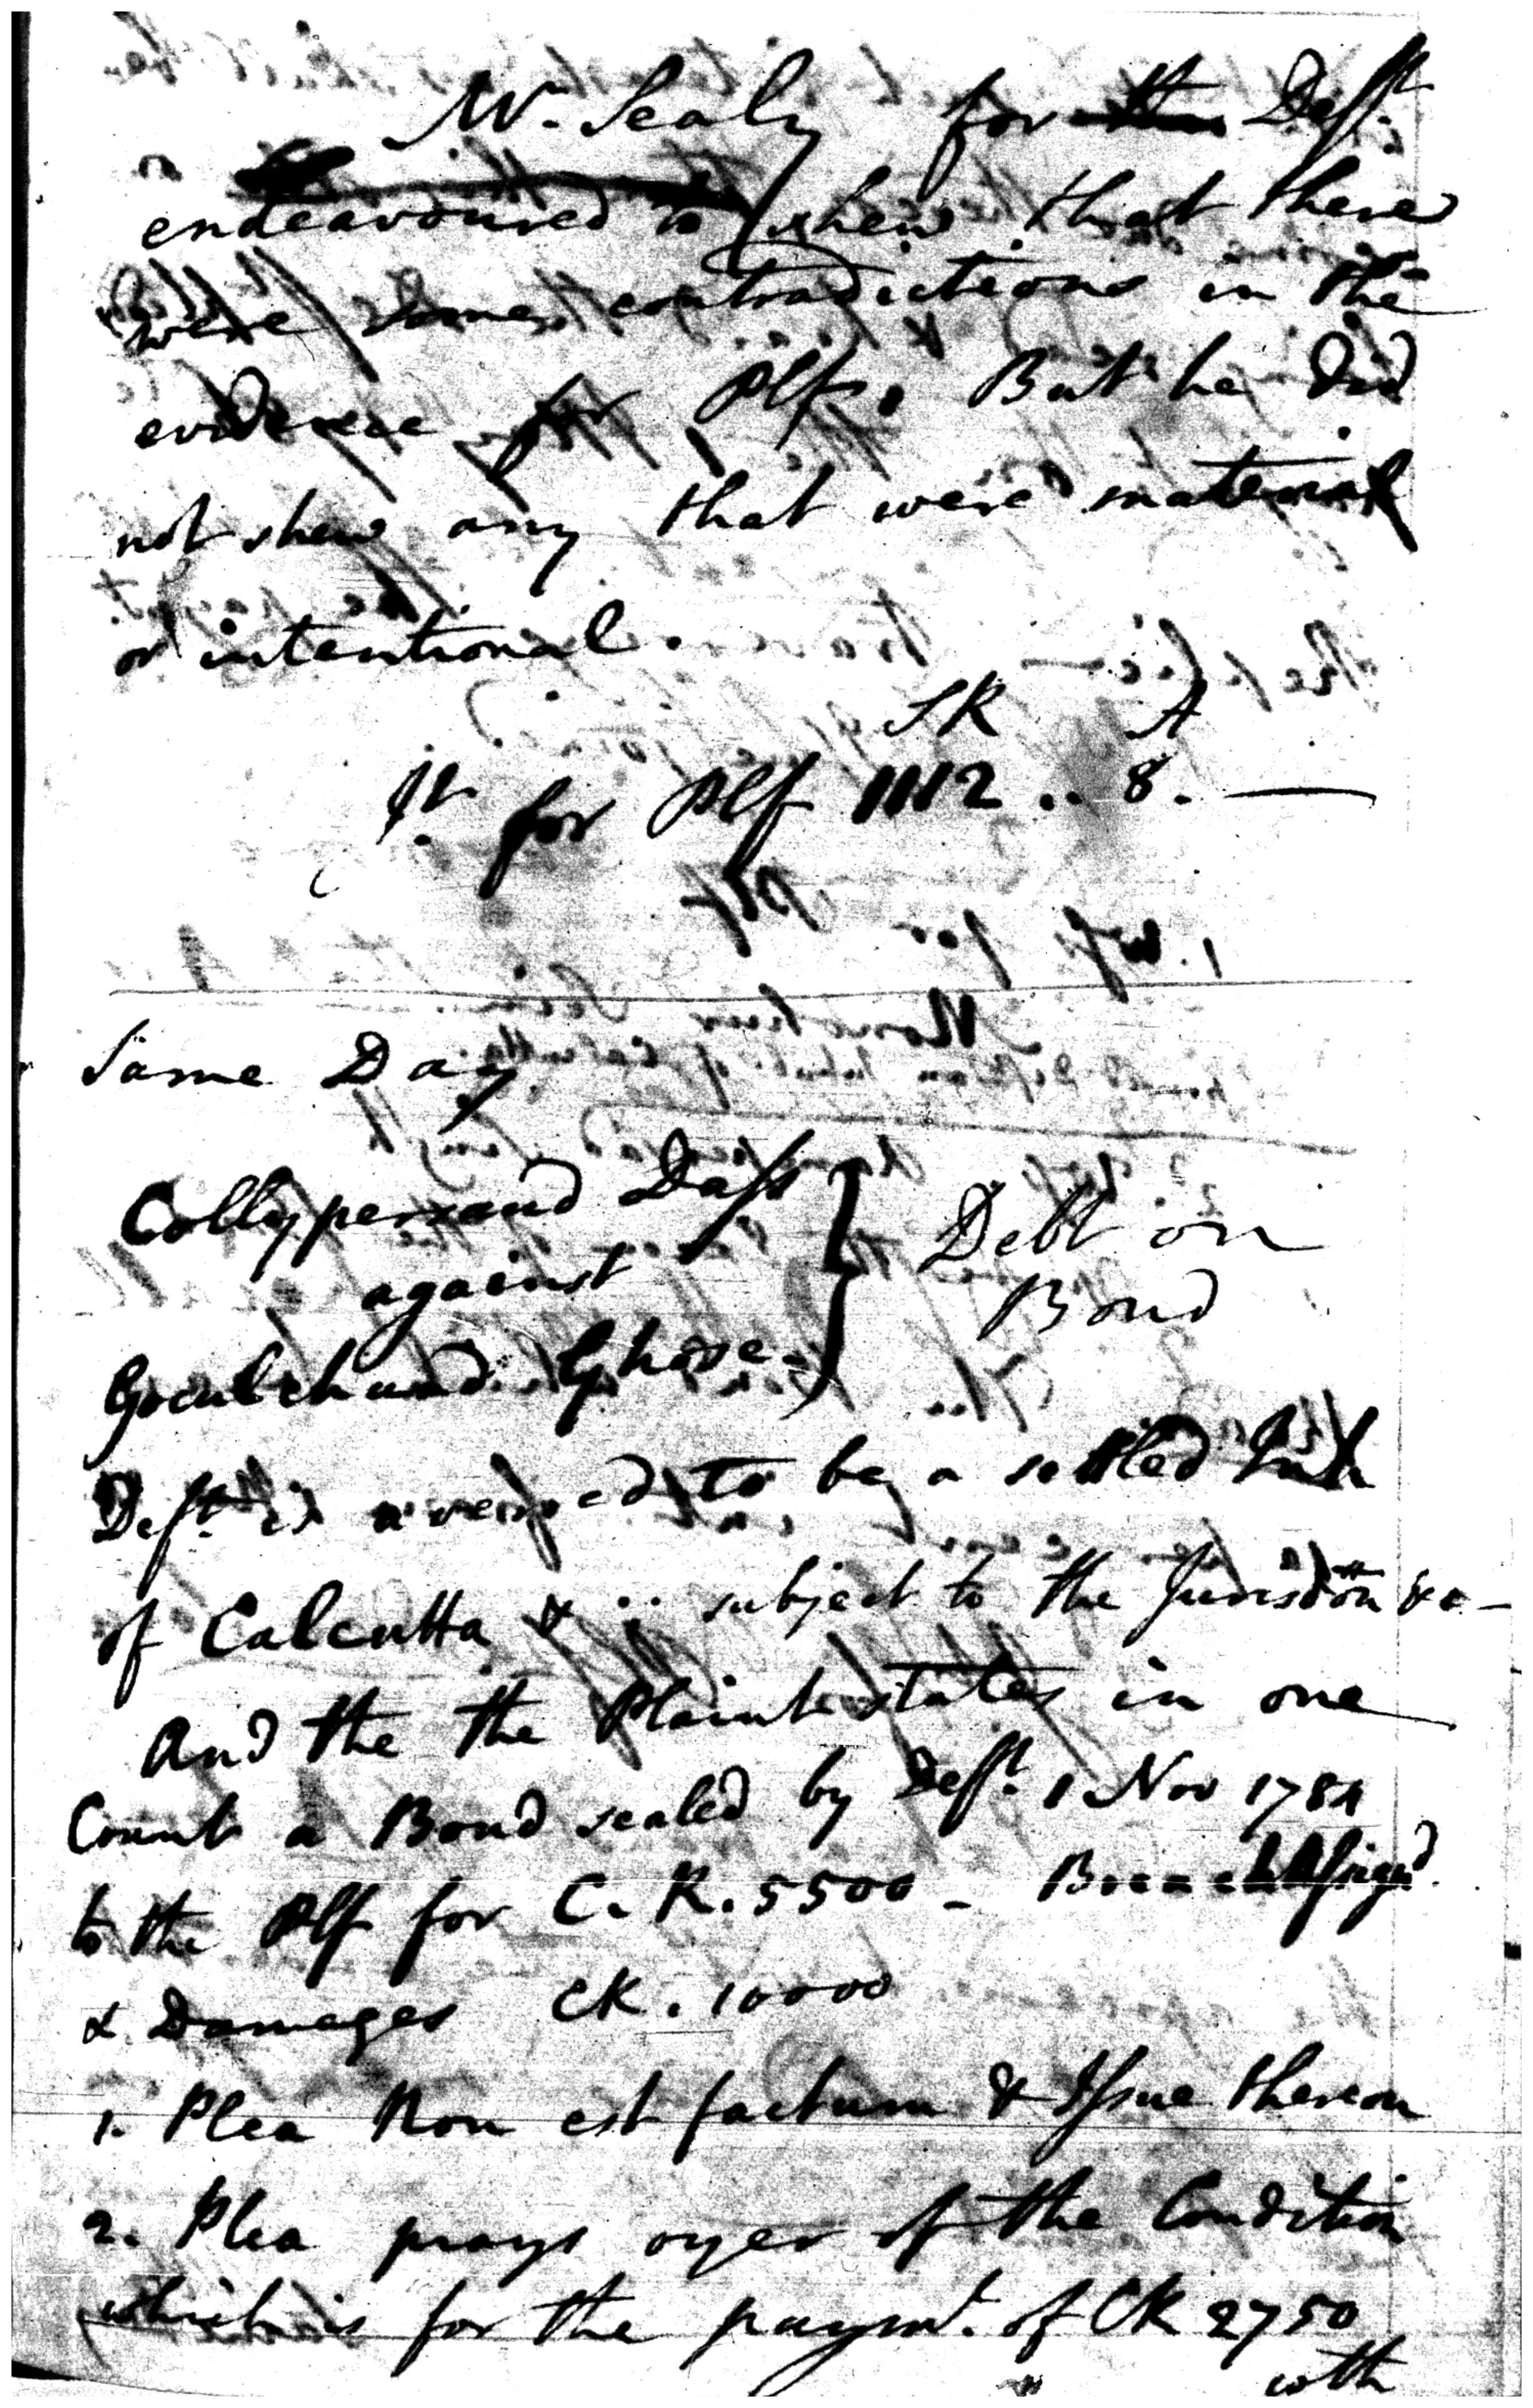 Mr. Sealy for Deft.
endeavoured to shew that there
were some contradictions in the
evidence for Plf. But he did
not shew any that were material
or intentional.
SR A
Jt. for Plf 1112 .. 8. —
Same Day
Collypersaud Dass
against
Goculchund Ghose.
Debt on
Bond
Deft. is averred to be a settled Inh
of Calcutta & .. subject to the Jurisdōn &c —
And the the Plaint states in one
Count a Bond sealed by Deft. 1 Nov 1784
to the Plf for C. R. 5500 – Breach Assignd.
& Damages CR. 10000
1. Plea Non est factum & Issue thereon
2. Plea prays oyer of the Condition
which is for the paymt. of CR 2750
wth